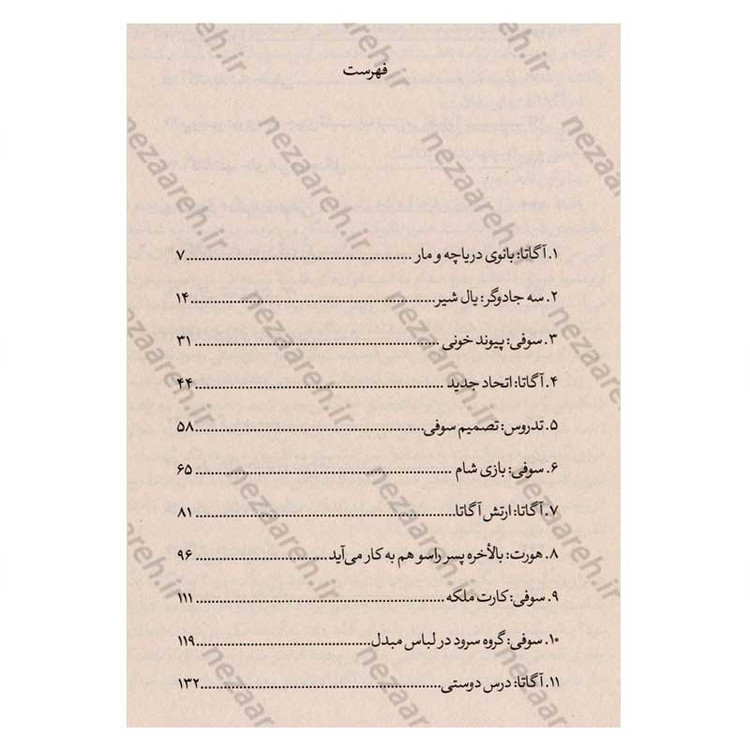 فهرست
۱. آگاتا: بانوی دریاچه و مار ........................................ ۷
۲. سه جادوگر: یال شیر ........................................ ۱۴
۳. سوفی: پیوند خونی ........................................ ۳۱
۴. آگاتا: اتحاد جدید ........................................ ۴۴
۵. تدروس: تصمیم سوفی ........................................ ۵۸
۶. سوفی: بازی شام ........................................ ۶۵
۷. آگاتا: ارتش آگاتا ........................................ ۸۱
۸. هورت: بالأخره پسر راسو هم به کار می‌آید ........................................ ۹۶
۹. سوفی: کارت ملکه ........................................ ۱۱۱
۱۰. سوفی: گروه سرود در لباس مبدل ........................................ ۱۱۹
۱۱. آگاتا: درس دوستی ........................................ ۱۳۲
nezaareh.ir